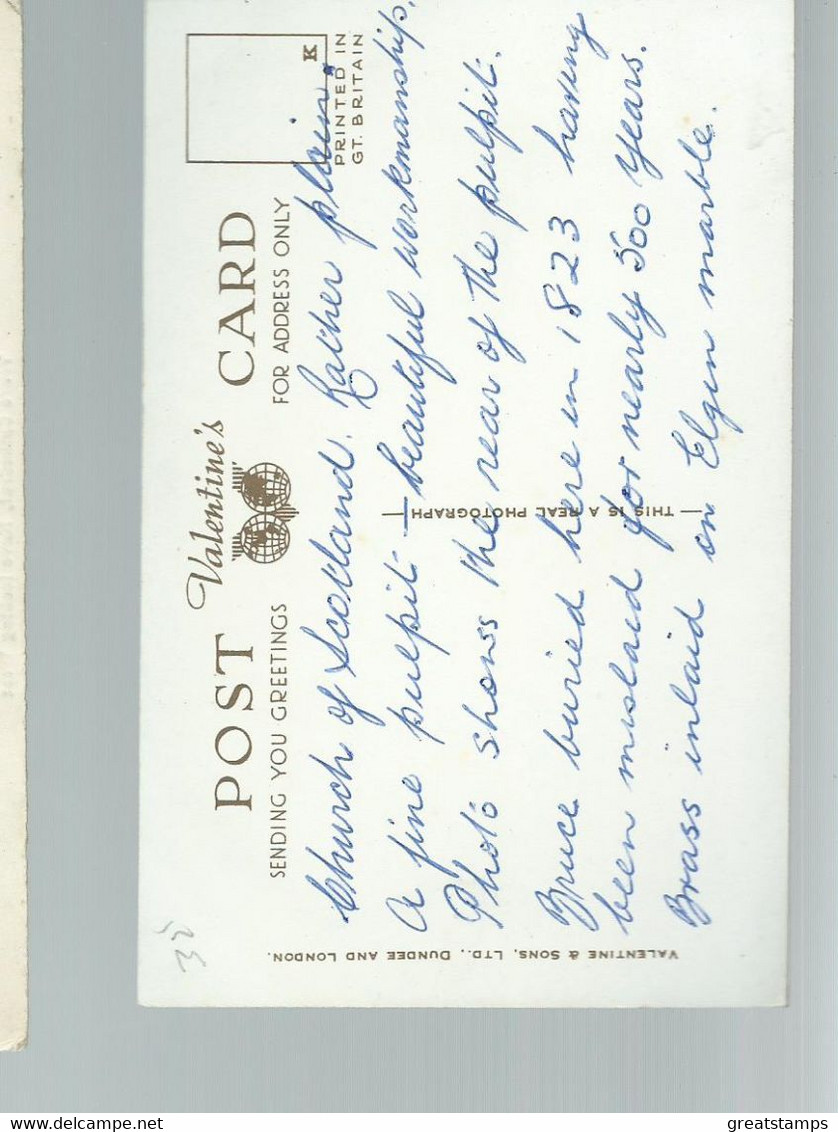 POST Valentine's CARD
SENDING YOU GREETINGS
FOR ADDRESS ONLY
K
PRINTED IN
GT. BRITAIN
Church of Scotland. Rather plain.
A fine pulpit — beautiful workmanship.
Photo shows the rear of the pulpit.
Bruce buried here in 1823 having
been mislaid for nearly 500 years.
Brass inlaid on Elgin marble.
— THIS IS A REAL PHOTOGRAPH —
VALENTINE & SONS, LTD., DUNDEE AND LONDON.
35
greatstamps